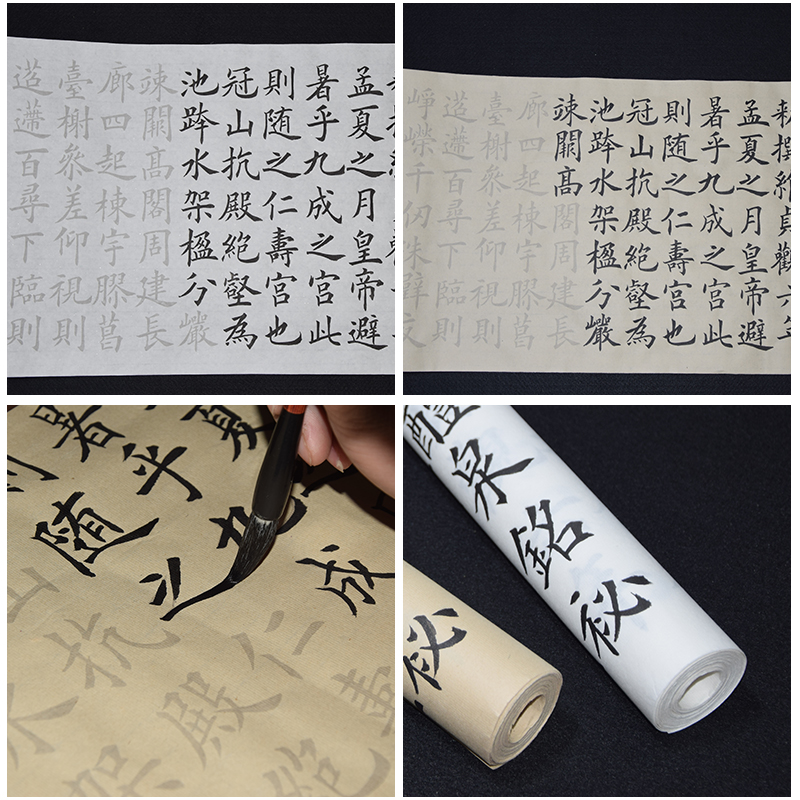 孟夏之月皇帝避
暑乎九成之宮此
則随之仁壽宮也
冠山抗殿絶壑為
池跨水架楹分巖
竦闕高閣周建長
廊四起棟宇膠葛
臺榭參差仰視則
迢遰百尋下臨則
勑撰維貞觀六年
孟夏之月皇帝避
暑乎九成之宮此
則随之仁壽宮也
冠山抗殿絶壑為
池跨水架楹分巖
竦闕高閣周建長
廊四起棟宇膠葛
臺榭參差仰視則
迢遰百尋下臨則
崢嶸千仞珠璧交
夏
暑乎九成
則随之仁壽
山抗殿絶
水架
醴泉銘秘
秘